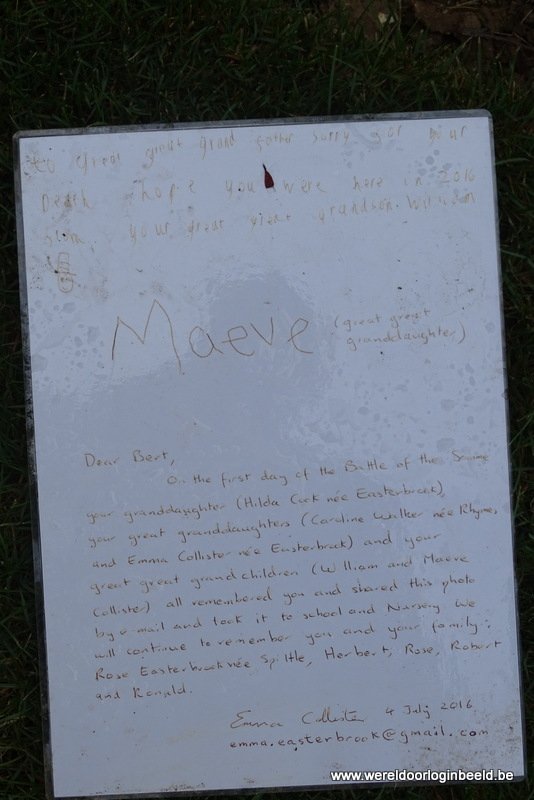 to great great grand father sorry for your
Death hope you were here in 2016
from your great great grandson William
Maeve (great great
granddaughter)
Dear Bert,
On the first day of the Battle of the Somme
your granddaughter (Hilda Cock née Easterbrook),
your great granddaughters (Caroline Walker née Rhyme,
and Emma Collister née Easterbrook) and your
great great grandchildren (William and Maeve
Collister) all remembered you and shared this photo
by e-mail and took it to school and Nursery. We
will continue to remember you and your family:
Rose Easterbrook née Spittle, Herbert, Rose, Robert
and Ronald.
Emma Collister 4 July 2016.
emma.easterbrook@gmail.com
www.wereldoorloginbeeld.be